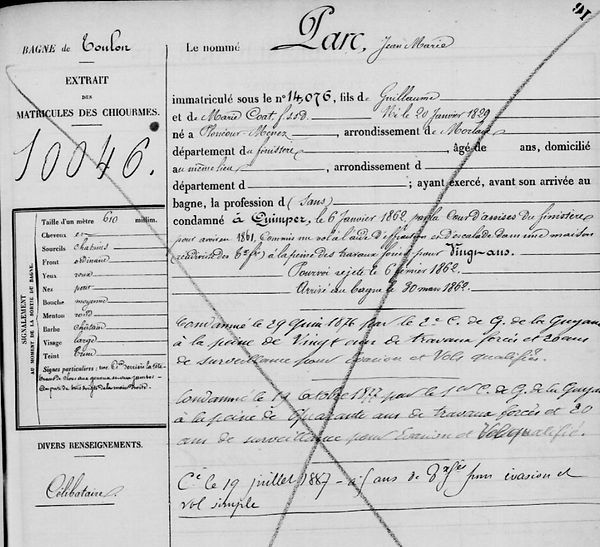 91
BAGNE de Toulon
EXTRAIT
DES
MATRICULES DES CHIOURMES.
10046.
SIGNALEMENT
AU MOMENT DE LA SORTIE DU BAGNE.
Taille d'un mètre 610 millim.
Cheveux et
Sourcils châtains
Front ordinaire
Yeux roux
Nez petit
Bouche moyenne
Menton rond
Barbe châtain
Visage large
Teint
Signes particuliers : une
DIVERS RENSEIGNEMENTS.
Célibataire.
Le nommé Parc, Jean Marie
immatriculé sous le n° 14,076, fils de Guillaume
et de Marie Coat, Né le 20 Janvier 1829
né à Plonéour-Menez, arrondissement de Morlaix
département du finistère, âgé de ans, domicilié
au même lieu, arrondissement d
département d ; ayant exercé, avant son arrivée au
bagne, la profession d (sans)
condamné à Quimper, le 6 Janvier 1862 par la Cour d'assises du finistère
pour avoir en 1861, Commis un vol à l'aide d'effraction et d'escalade dans une maison
à la peine des travaux forcés pour Vingt ans.
Pourvoi rejeté le 6 février 1862.
Arrivé au bagne le 30 mars 1862.
Condamné le 29 Juin 1876 par le 2e C. de G. de la Guyane
à la peine de Vingt ans de travaux forcés et 20 ans
de surveillance pour évasion et Vols qualifiés.
Condamné le 19 octobre 1877 par le 1er C. de G. de la Guyane
à la peine de Quarante ans de travaux forcés et 20
ans de surveillance pour Evasion et Vol qualifié.
Cé le 19 juillet 1887 - à 5 ans de pour évasion et
vol simple